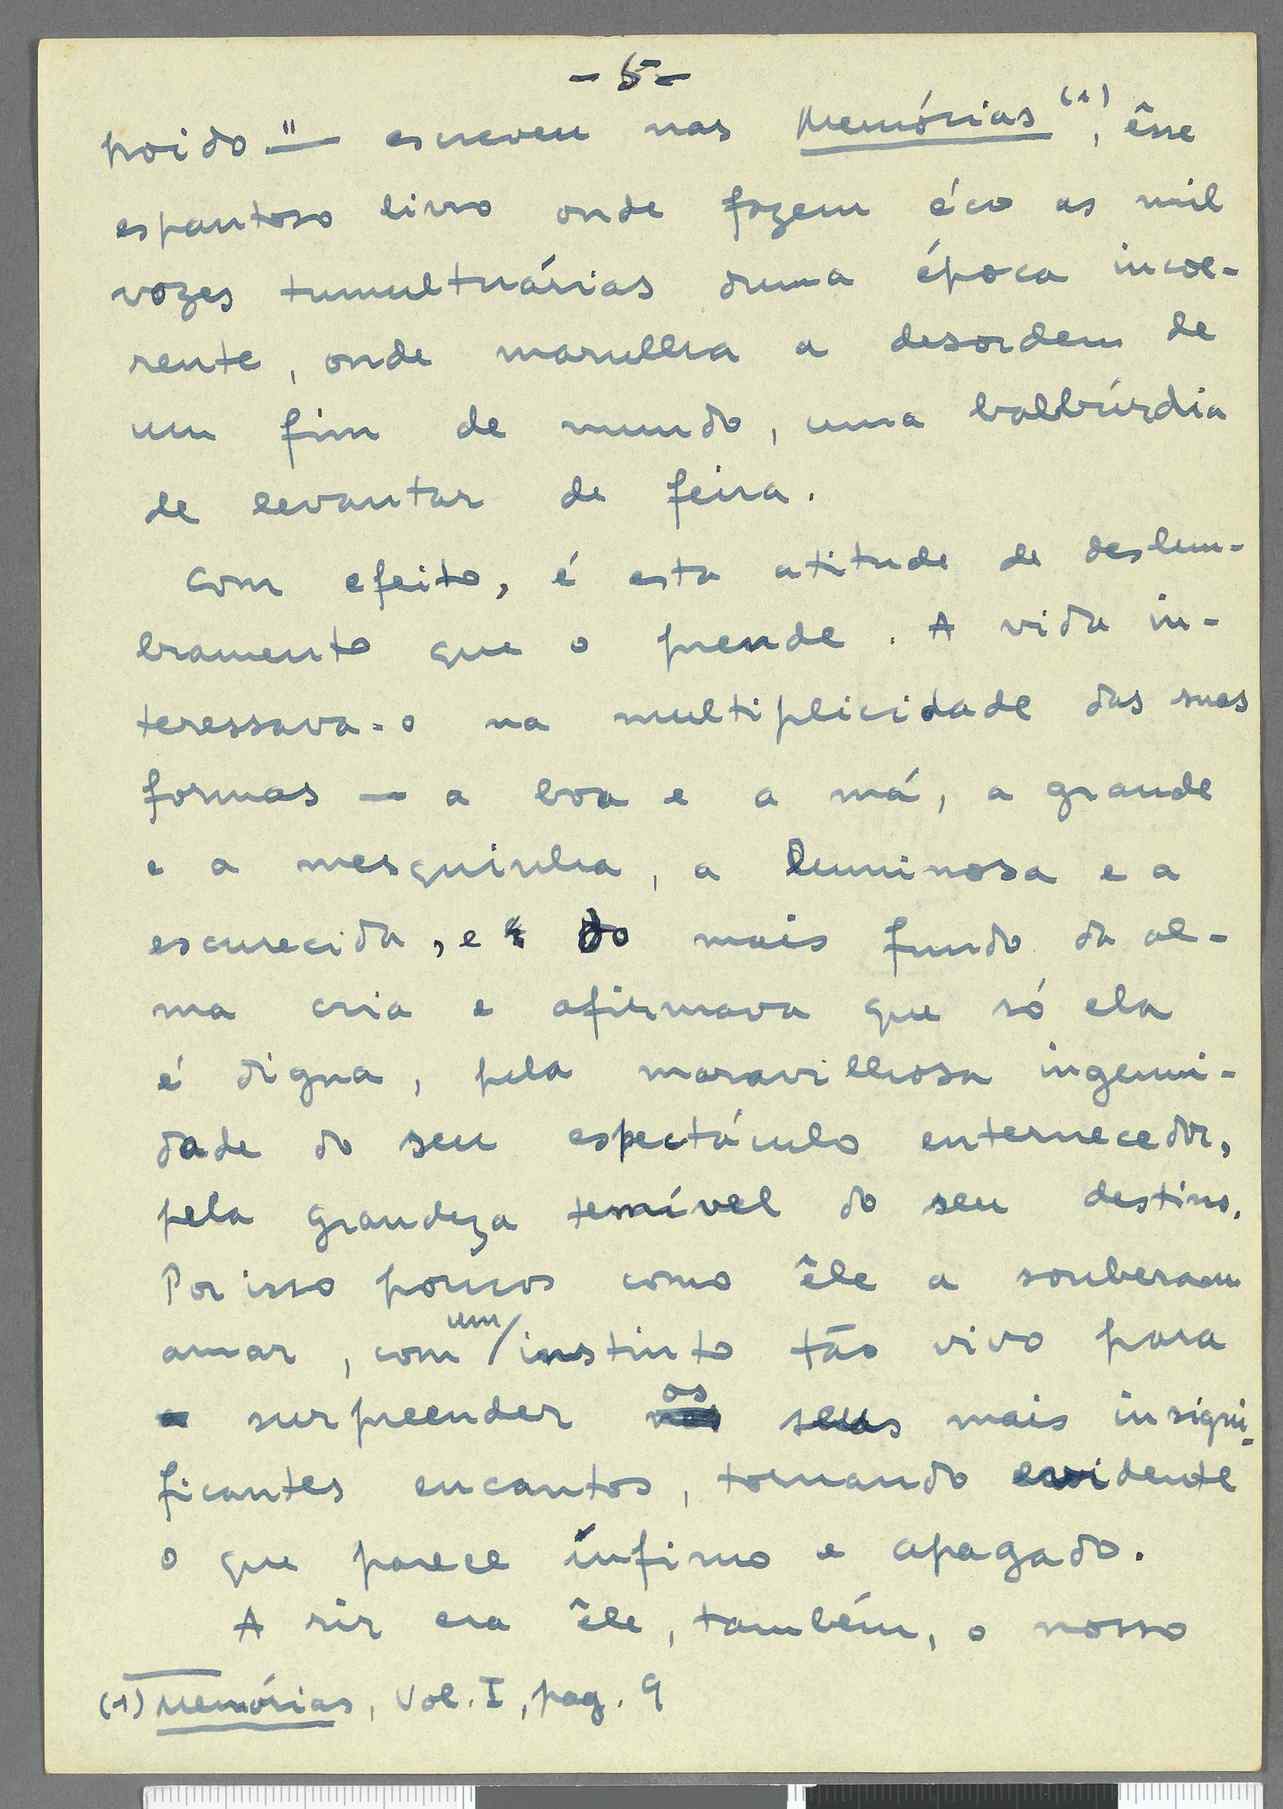 - 5 -
poido" — escreveu nas Memórias (1), êsse
espantoso livro onde fazem éco as mil
vozes tumultuárias duma época incoe-
rente, onde marulha a desordem de
um fim de mundo, uma balbúrdia
de levantar de feira.
Com efeito, é esta atitude de deslum-
bramento que o prende. A vida in-
teressava-o na multiplicidade das suas
formas — a boa e a má, a grande
e a mesquinha, a luminosa e a
escurecida, e do mais fundo da al-
ma cria e afirmava que só ela
é digna, pela maravilhosa ingenui-
dade do seu espectáculo enternecedor,
pela grandeza temível do seu destino.
Por isso poucos como êle a souberam
amar, com um instinto tão vivo para
surpreender os seus mais insigni-
ficantes encantos, tornando evidente
o que parece ínfimo e apagado.
A rir era êle, também, o nosso
(1) Memórias, Vol. I, pag. 9